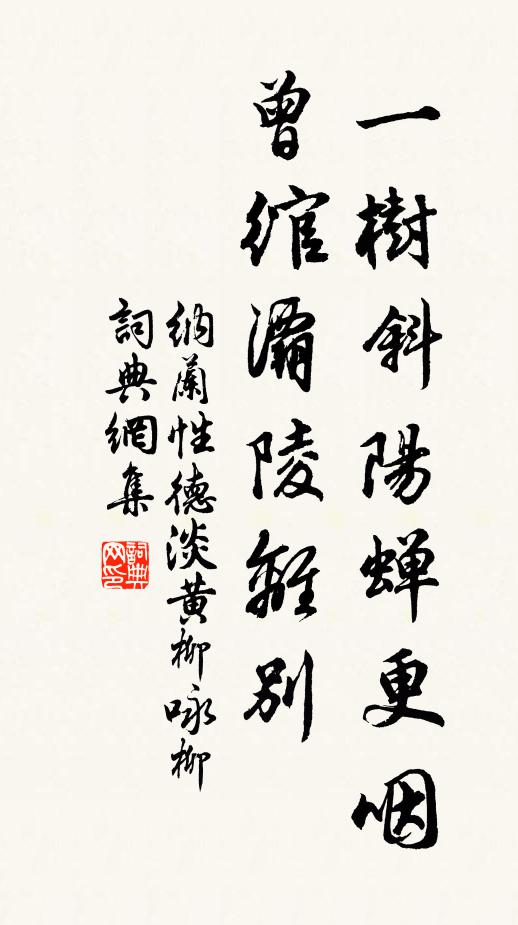 一樹斜陽蝉更咽
曾綰灞陵離別
納蘭性德淡黃柳咏柳
詞典網集
詞典网印